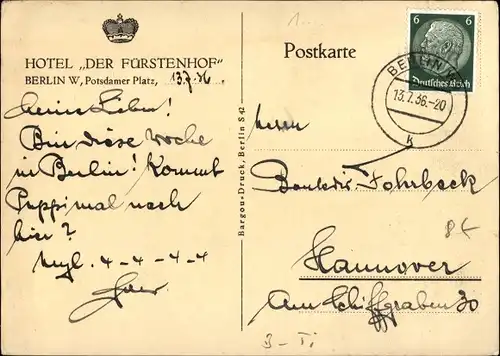 HOTEL „DER FÜRSTENHOF"
BERLIN W, Potsdamer Platz, 13.7.36
Meine Lieben!
Bin diese Woche
in Berlin! Kommt
Puppi mal nach
hier?
4-4-4-4
Bargou-Druck, Berlin S 42
Postkarte
6 6
Deutsches Reich
BERLIN
13.7.36.-20
k
Herrn
Bankdir. Fohrbeck
Hannover
Am Schiffgraben 30
8€